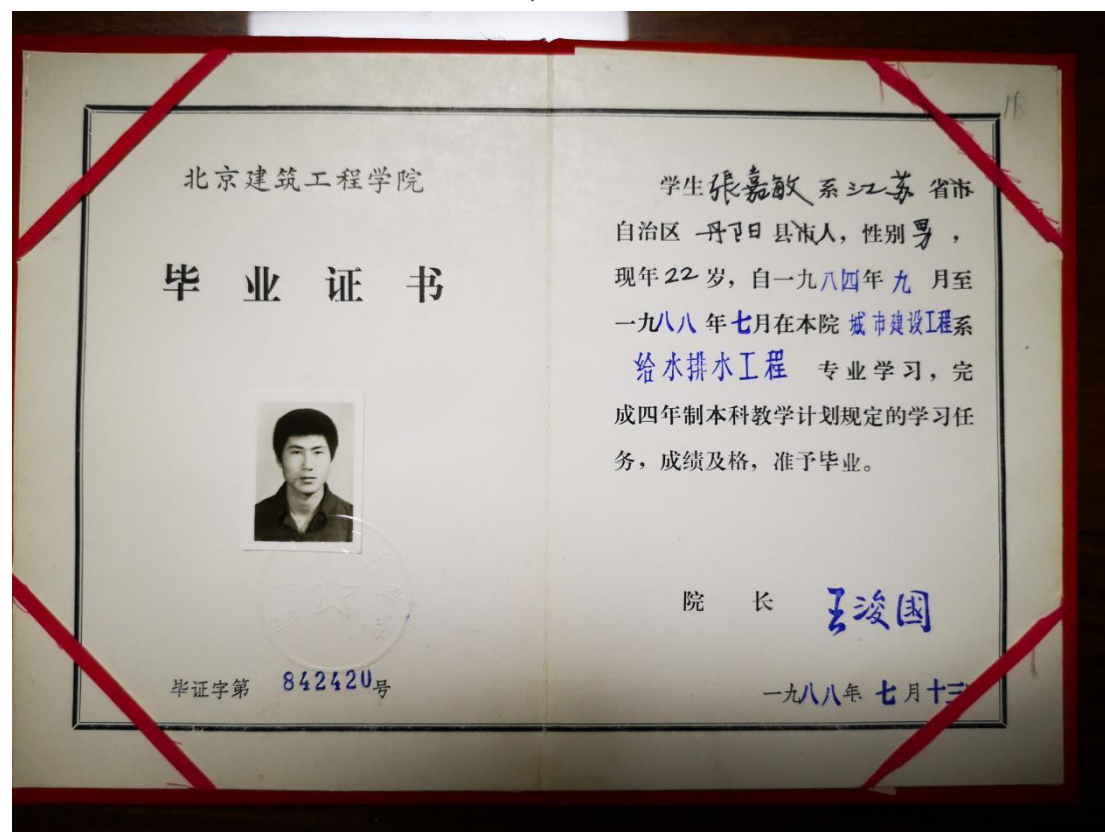 北京建筑工程学院
毕业证书
毕证字第 842420号
学生張嘉敏系江苏省市
自治区 丹阳县市人，性别男，
现年22岁，自一九八四年九月至
一九八八年七月在本院城市建设工程系
给水排水工程 专业学习，完
成四年制本科教学计划规定的学习任
务，成绩及格，准予毕业。
院长 王浚国
一九八八年七月十三